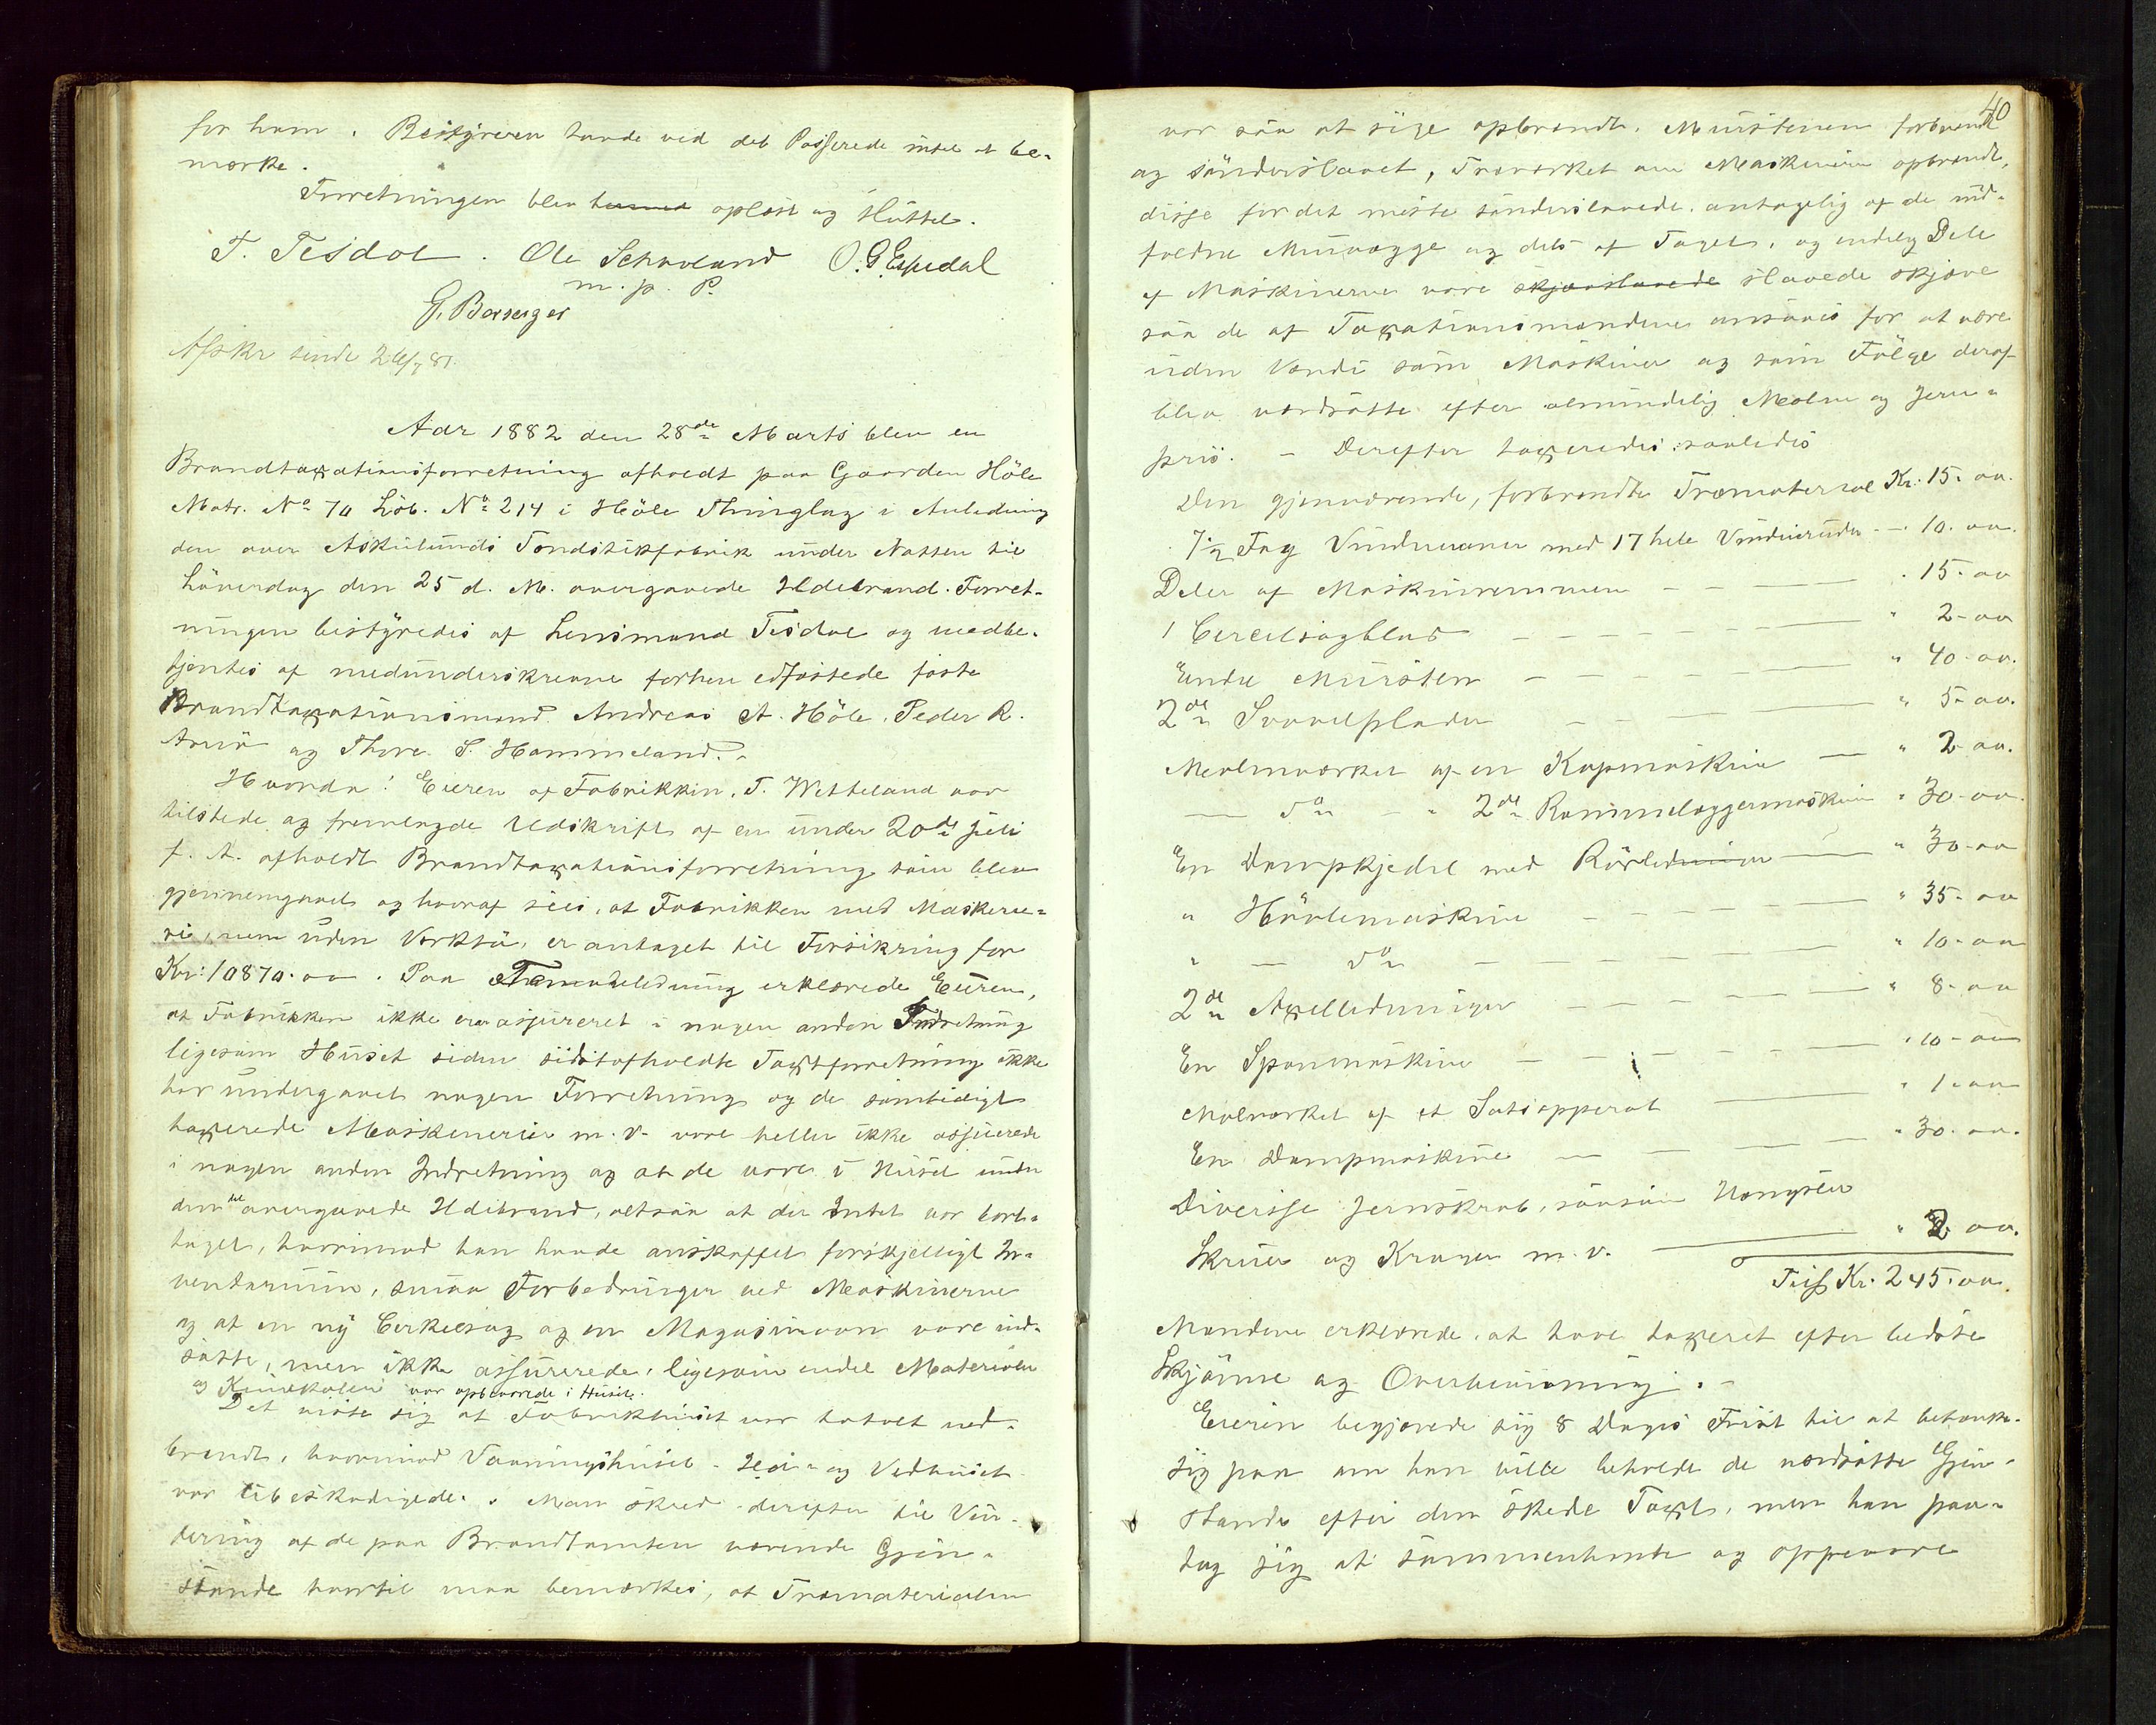 for ham. Bestyreren havde ved det Passerede intet at be-
mærke.
Forretningen blev hermed oplæst og sluttet.
T. Tesdal. Ole Schaveland O. G. Espedal
m. p. P.
G. Borserger
Afskr sendt 26/7 81.
Aar 1882 den 28de Marts blev en
Brandtaxationsforretning afholdt paa Gaarden Höle
Matr. No 70 Löb. No 214 i Höle Thinglag i Anledning
den over Askelunds Tondstikfabrik under Natten til
Löverdag den 25 d. M. overgaaede Ildebrand. Forret-
ningen bestyredes af Lensmand Tesdal og medbe-
tjentes af medunderskrevne forhen edfæstede faste
Brandtaxationsmænd Andreas A. Höle, Peder R.
og Thore S. Hommeland.
Hvorda! Eieren af Fabrikken, T. Wetteland var
tilstede og fremlagde Udskrift af en under 20de Juli
f. A. afholdt Brandtaxationsforretning som blev
gjennemgaaet og hvoraf sees, at Fabrikken med Maskine-
rie, men uden Verktöi, er antaget til Forsikring for
Kr: 10870.00. Paa Foranledning erklærede Eieren,
at Fabrikken ikke er assureret i nogen anden Indretning
ligesom Huset siden sidstafholdte Taxtforretning ikke
har undergaaet nogen Forretning og de samtidigt
taxerede Maskinerier m. v. vare heller ikke assurerede
i nogen anden Indretning og at de vare i Huset under
den overgaaede Ildebrand, altsaa at der Intet var bort-
taget, hvorimod han havde anskaffet forskjelligt In-
ventarium, smaa Forbedringer ved Maskinerne
og at en ny Cirkelsag og en Magasinovn vare ind-
satte, men ikke assurerede, ligesom endel Materialer
og var opbevarede i Huset.
Det viste sig at Fabrikhuset var totalt ned-
brændt, hvorimod Vaaningshuset - og Vedhuset
var ubeskadigede. Man skred derefter til Vur-
dering af de paa Brandtomten værende Gjen-
stande hvortil maa bemærkes, at Træmaterialen
40
var saa at sige opbrændt. Murstenen forbrændt
og sönderslaaet, Træværket om Maskinerne opbrændt,
disse for det meste sönderslaaede, antagelig af de ind-
faldne Murvægge og dels af Taget, og endelig Dele
af Maskinerne vare skjævslaaede slaaede skjæve
saa de af Taxationsmændene ansaaes for at være
uden Værdi som Maskiner og som Fölge deraf
blev værdsatte efter almindelig Malm og Jern-
pris. - Derefter taxeredes saaledes
Den gjenværende, forbrændte Træmaterial Kr. 15. 00.
7½ Fag Vinduerammer med 17 hele Vinduiruder - 10. 00.
Deler af Maskinremmen - - — - 15. 00
1 Circelsagblad - - — " 2 - 00
Endel Mursten - - - — " 40 - 00.
2de Svovelplader - - — " 5 - 00.
Malmværket af en Kapmaskine — " 2 - 00.
— do - " 2de Rammelæggermaskiner " 30 - 00.
En Dampkjedel med Rörledninger — " 30 - 00
" Hövlemaskine - - - — " 35 - 00
" — do - - - — " 10 - 00
2de Axelledninger - - - — " 8 - 00
En Sponmaskine - - - — " 10 - 00
Malværket af et Satsapparat — " 1 - 00
En Dampmaskine — — — " 30 - 00.
Diversse Jernskrab, saasom Hængsler
Skruer og Kroger m. v. — " 2 00.
Tils Kr. 245. 00.
Mændene erklærede, at have taxeret efter bedste
Skjönne og Overbevisning.
Eieren begjærede sig 8 Dages Frist til at betænke
sig paa om han vilde beholde de værdsatte Gjen-
stande efter den skede Taxt, men han paa-
tog sig at sammenhente og oppevare